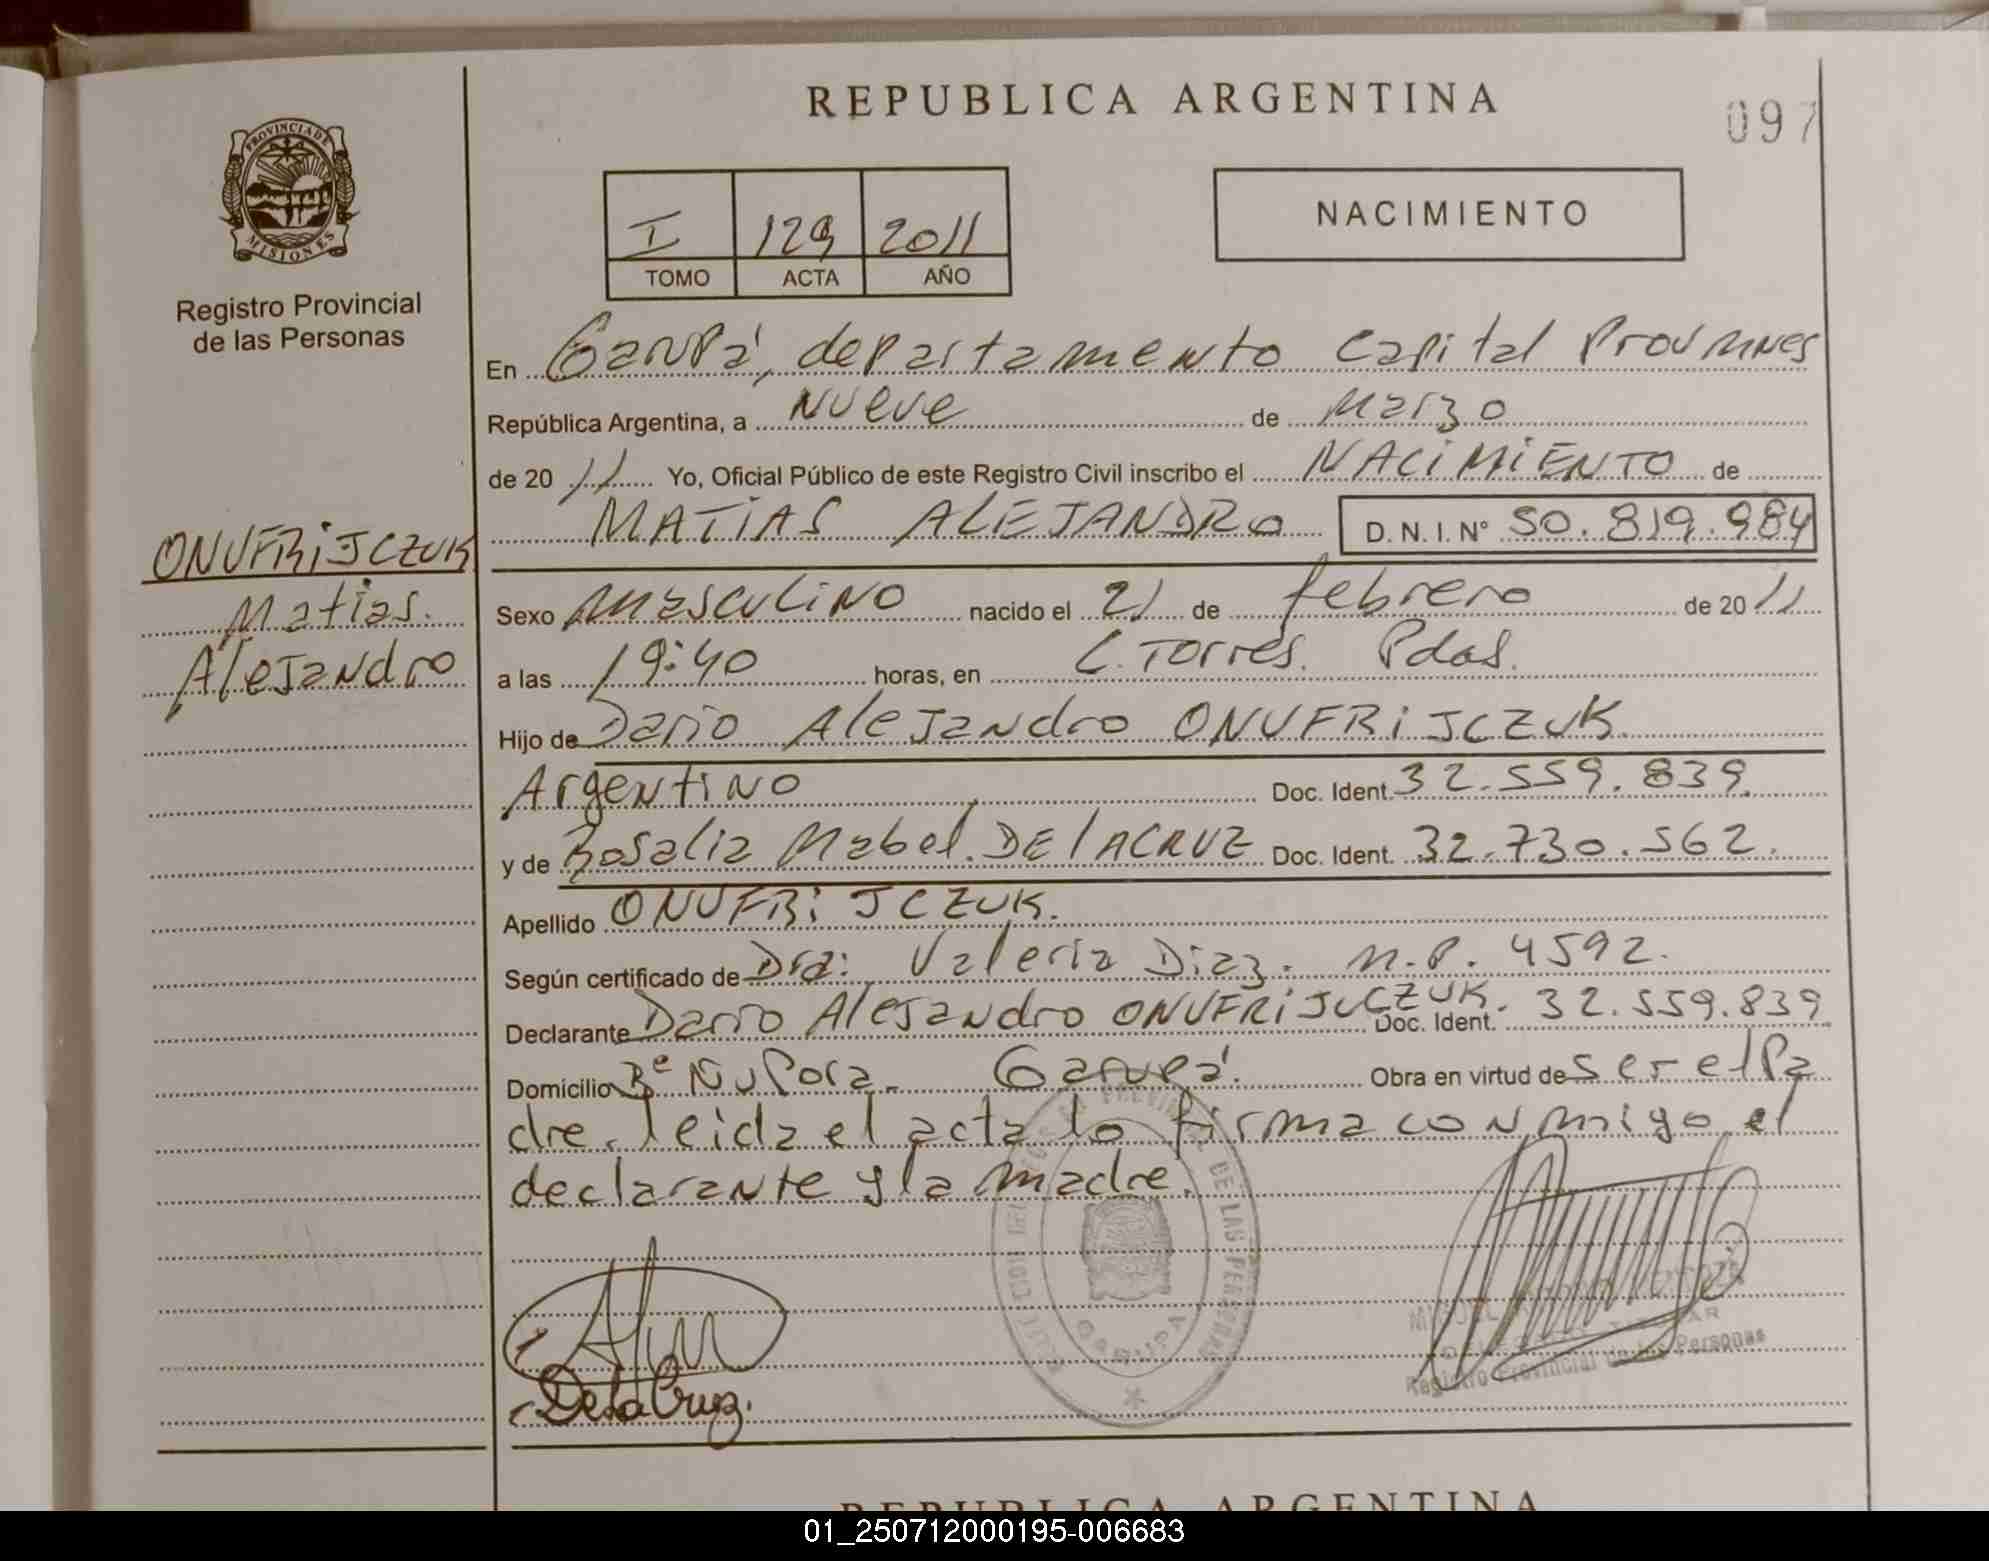 REPUBLICA ARGENTINA
097
PROVINCIA DE
MISIONES
Registro Provincial
de las Personas
I 129 2011
TOMO ACTA AÑO
NACIMIENTO
En Garupá, departamento Capital
República Argentina, a Nueve de Marzo
de 20 11 Yo, Oficial Público de este Registro Civil inscribo el NACIMIENTO de
MATIAS ALEJANDRO D. N. I. N° 50.819.984
ONUFRIJCZUK
Matias.
Alejandro
Sexo masculino nacido el 21 de febrero de 20 11
a las 19:40 horas, en C. Torres. Pdas.
Hijo de Dario Alejandro ONUFRIJCZUK.
Argentino Doc. Ident. 32.559.839.
y de Rosalia Mabel. DE lACRUZ Doc. Ident. 32.730.562.
Apellido ONUFRIJCZUK.
Según certificado de Dra: Valeria Diaz. M.P. 4592.
Declarante Dario Alejandro ONUFRIJUCZUK. Doc. Ident. 32.559.839
Domicilio Bº Ñu Pora. Garupá. Obra en virtud de ser el Pa
dre. leida el acta lo firma conmigo el
declarante y la madre.
De la Cruz.
PROVINCIAL DE LAS PERSONAS
GARUPA
Registro Provincial de las Personas
REPUBLICA ARGENTINA
01_250712000195-006683